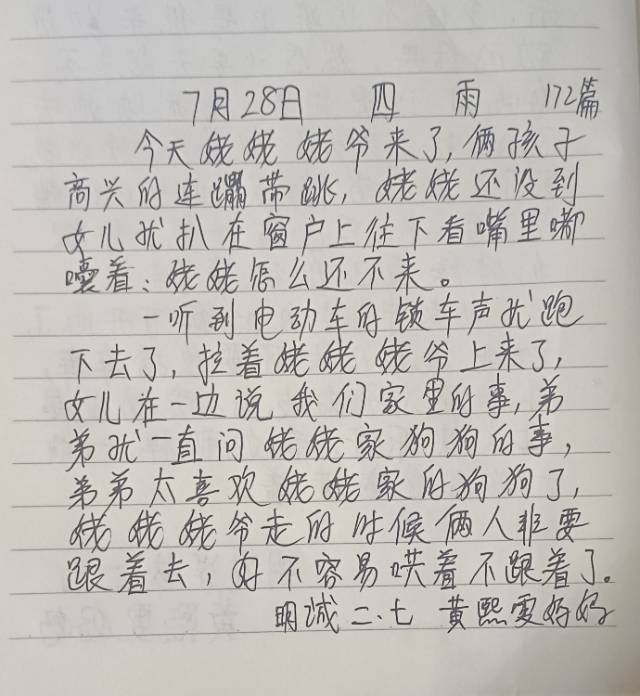 7月28日 四 雨 172篇
今天姥姥姥爷来了,俩孩子
高兴的连蹦带跳,姥姥还没到
女儿就扒在窗户上往下看嘴里嘟
囔着:姥姥怎么还不来。
一听到电动车的锁车声就跑
下去了,拉着姥姥姥爷上来了,
女儿在一边说我们家里的事,弟
弟就一直问姥姥家狗狗的事,
弟弟太喜欢姥姥家的狗狗了,
姥姥姥爷走的时候俩人非要
跟着去,好不容易哄着不跟着了。
明诚二.七 黄熙雯好好